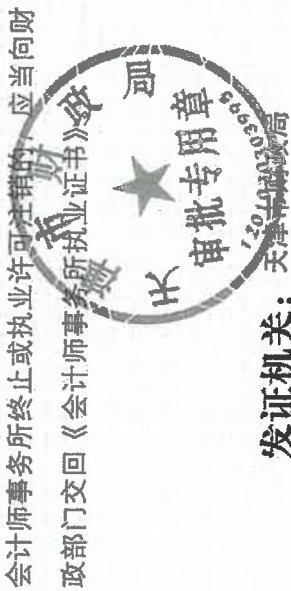 会计师事务所终止或执业许可注销的，应当向财
政部门交回《会计师事务所执业证书》。
天津市财政局
审批专用章
发证机关：天津市财政局